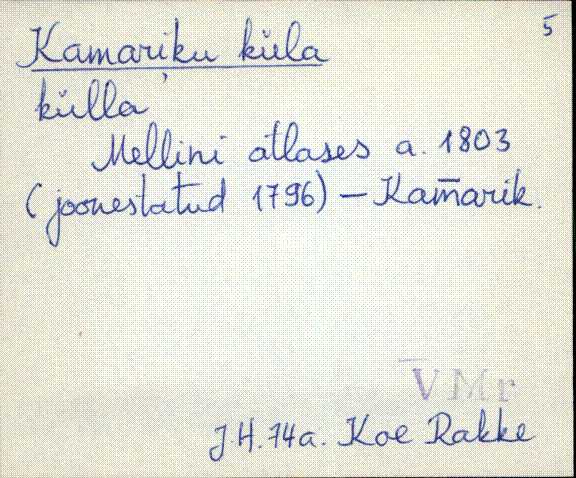 5
Kamariku küla
külla
Mellini atlases a. 1803
(joonestatud 1796) – Kam̄arik.
VMr
J.H. 74a. Koe Rakke